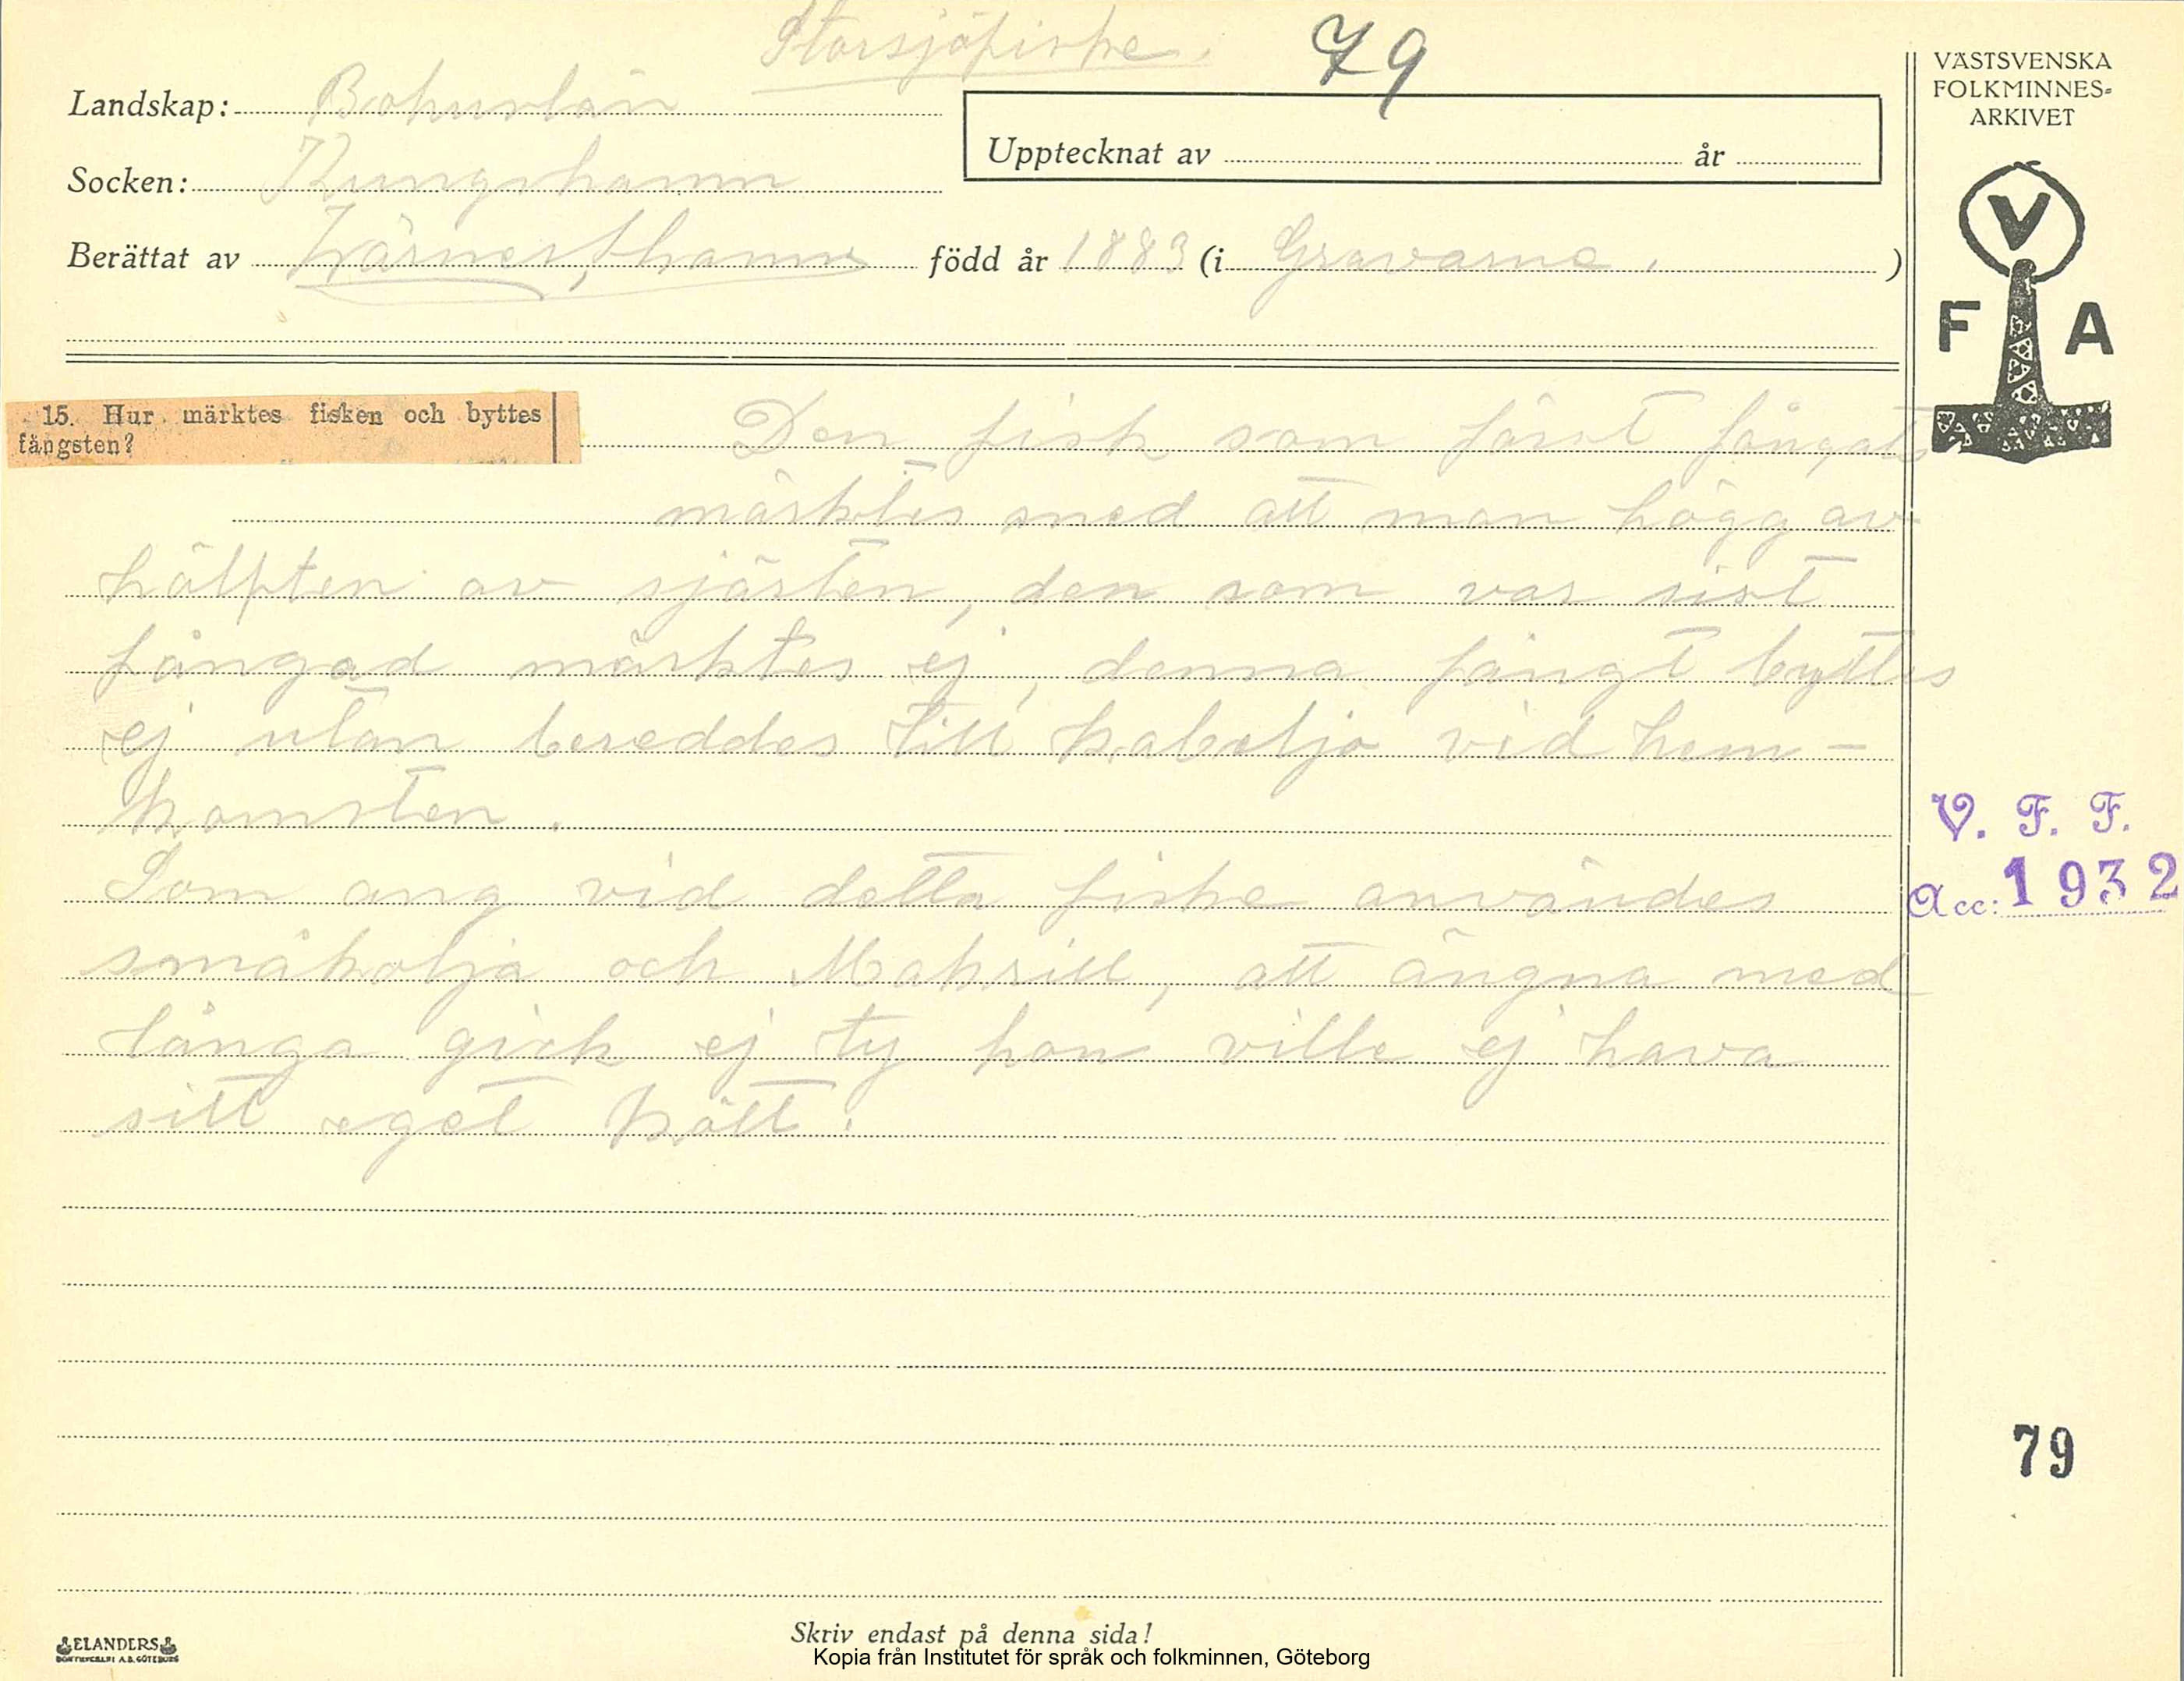 Storsjöfiske. 79
Landskap: Bohuslän
Socken: Kungshamn
Upptecknat av år
Berättat av född år 1883 (i Gravarne. )
VÄSTSVENSKA
FOLKMINNES-
ARKIVET
V
F A
15. Hur märktes fisken och byttes
fångsten?
Den fisk som först fångats
märktes med att man högg av
hälften av stjärten, den som var sist
fångad märktes ej, denna fångt byttes
ej utan bereddes till kabeljo vid hem-
komsten.
Som ang vid detta fiske användes
småkolja och Makrill, att ängna med
långa gick ej ty hon ville ej hava
sitt eget kött.
V. F. F.
Acc: 1932
79
Skriv endast på denna sida!
ELANDERS
BOKTRYCKERI A.B. GÖTEBORG
Kopia från Institutet för språk och folkminnen, Göteborg